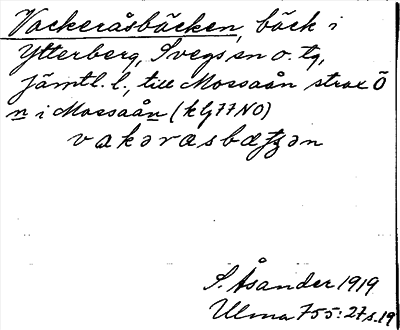 Vackeråsbäcken, bäck i
Ytterberg, Svegs sn o. tg,
Jämtl. l., till Mossaån strax Ö
n i Mossaån (k G77 NO)
vakəråsbæ
S. Åsander 1919
Ulma 755:27 s. 19